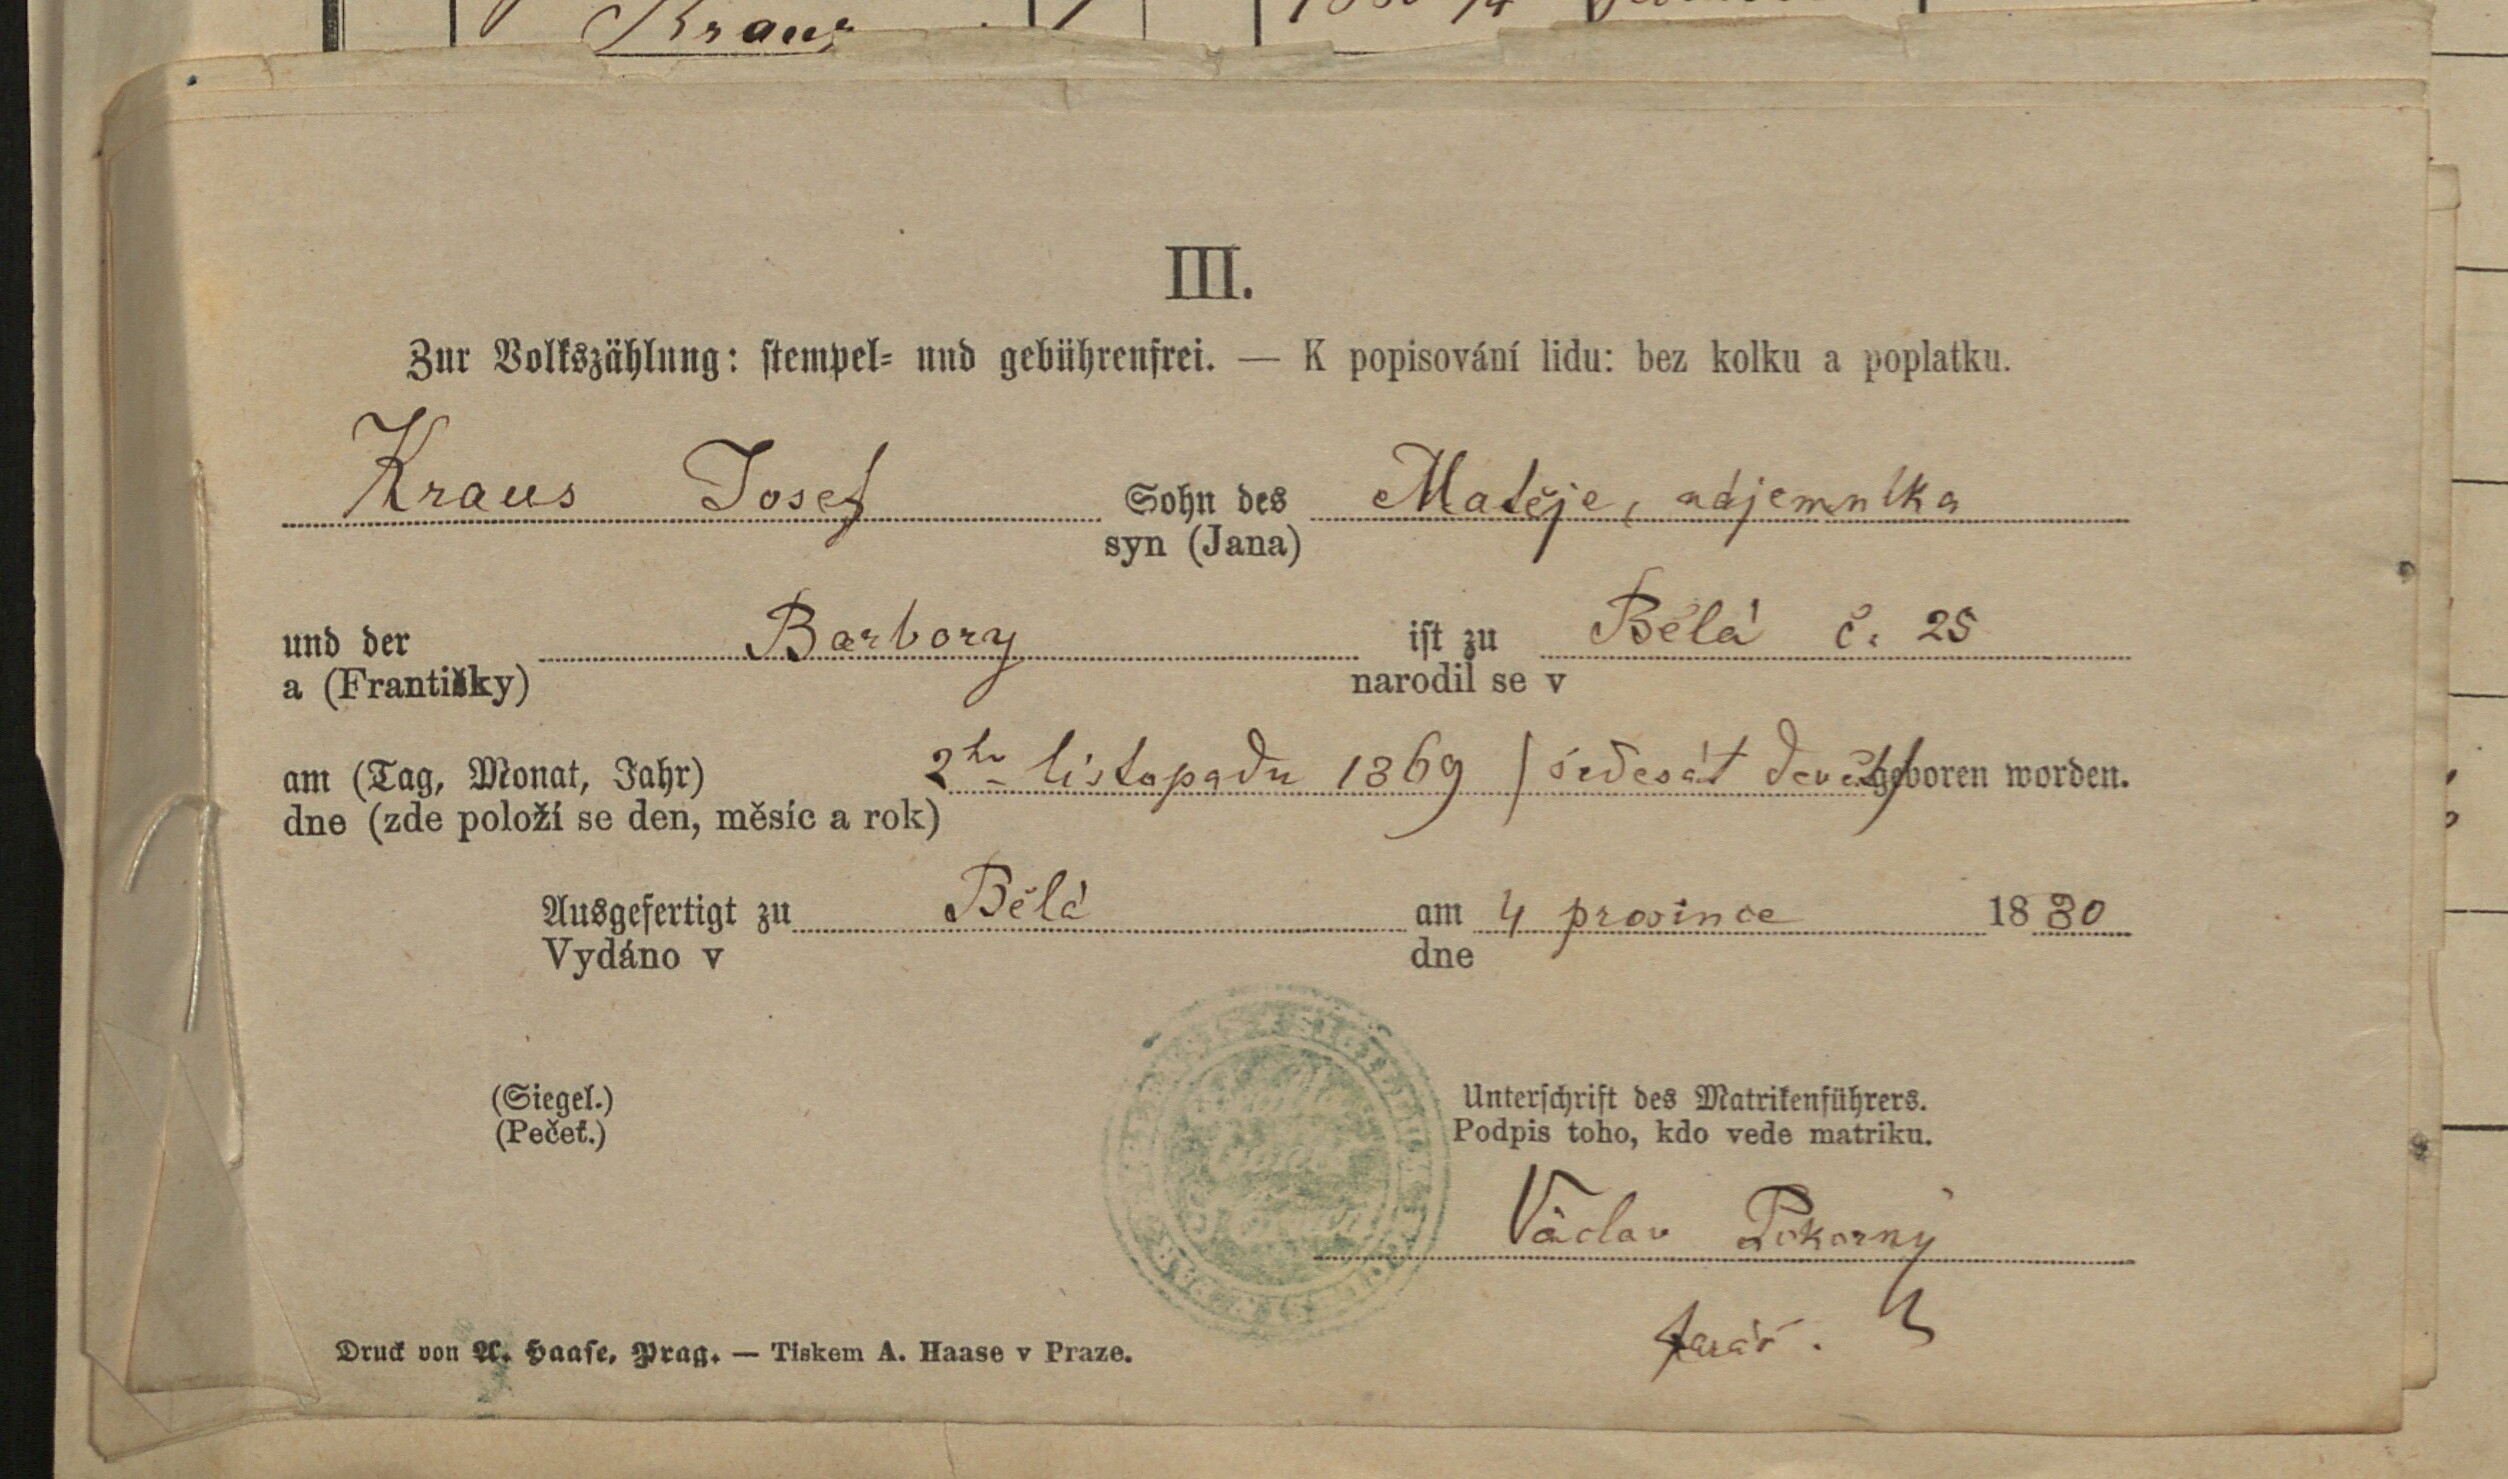 Kraus
III.
Zur Volkszählung: stempel- und gebührenfrei. — K popisování lidu: bez kolku a poplatku.
Kraus Josef Sohn des Matěje, nájemníka
syn (Jana)
und der Barbory ist zu Bělá č. 25
a (Františky) narodil se v
am (Tag, Monat, Jahr) 2ho listopadu 1869 / šedesát devět/ geboren worden.
dne (zde položí se den, měsíc a rok)
Ausgefertigt zu Bělá am 4 prosince 1880
Vydáno v dne
(Siegel.)
(Pečeť.)
Unterschrift des Matrikenführers.
Podpis toho, kdo vede matriku.
Václav Pokorný
farář.
Druck von A. Haase, Prag. — Tiskem A. Haase v Praze.